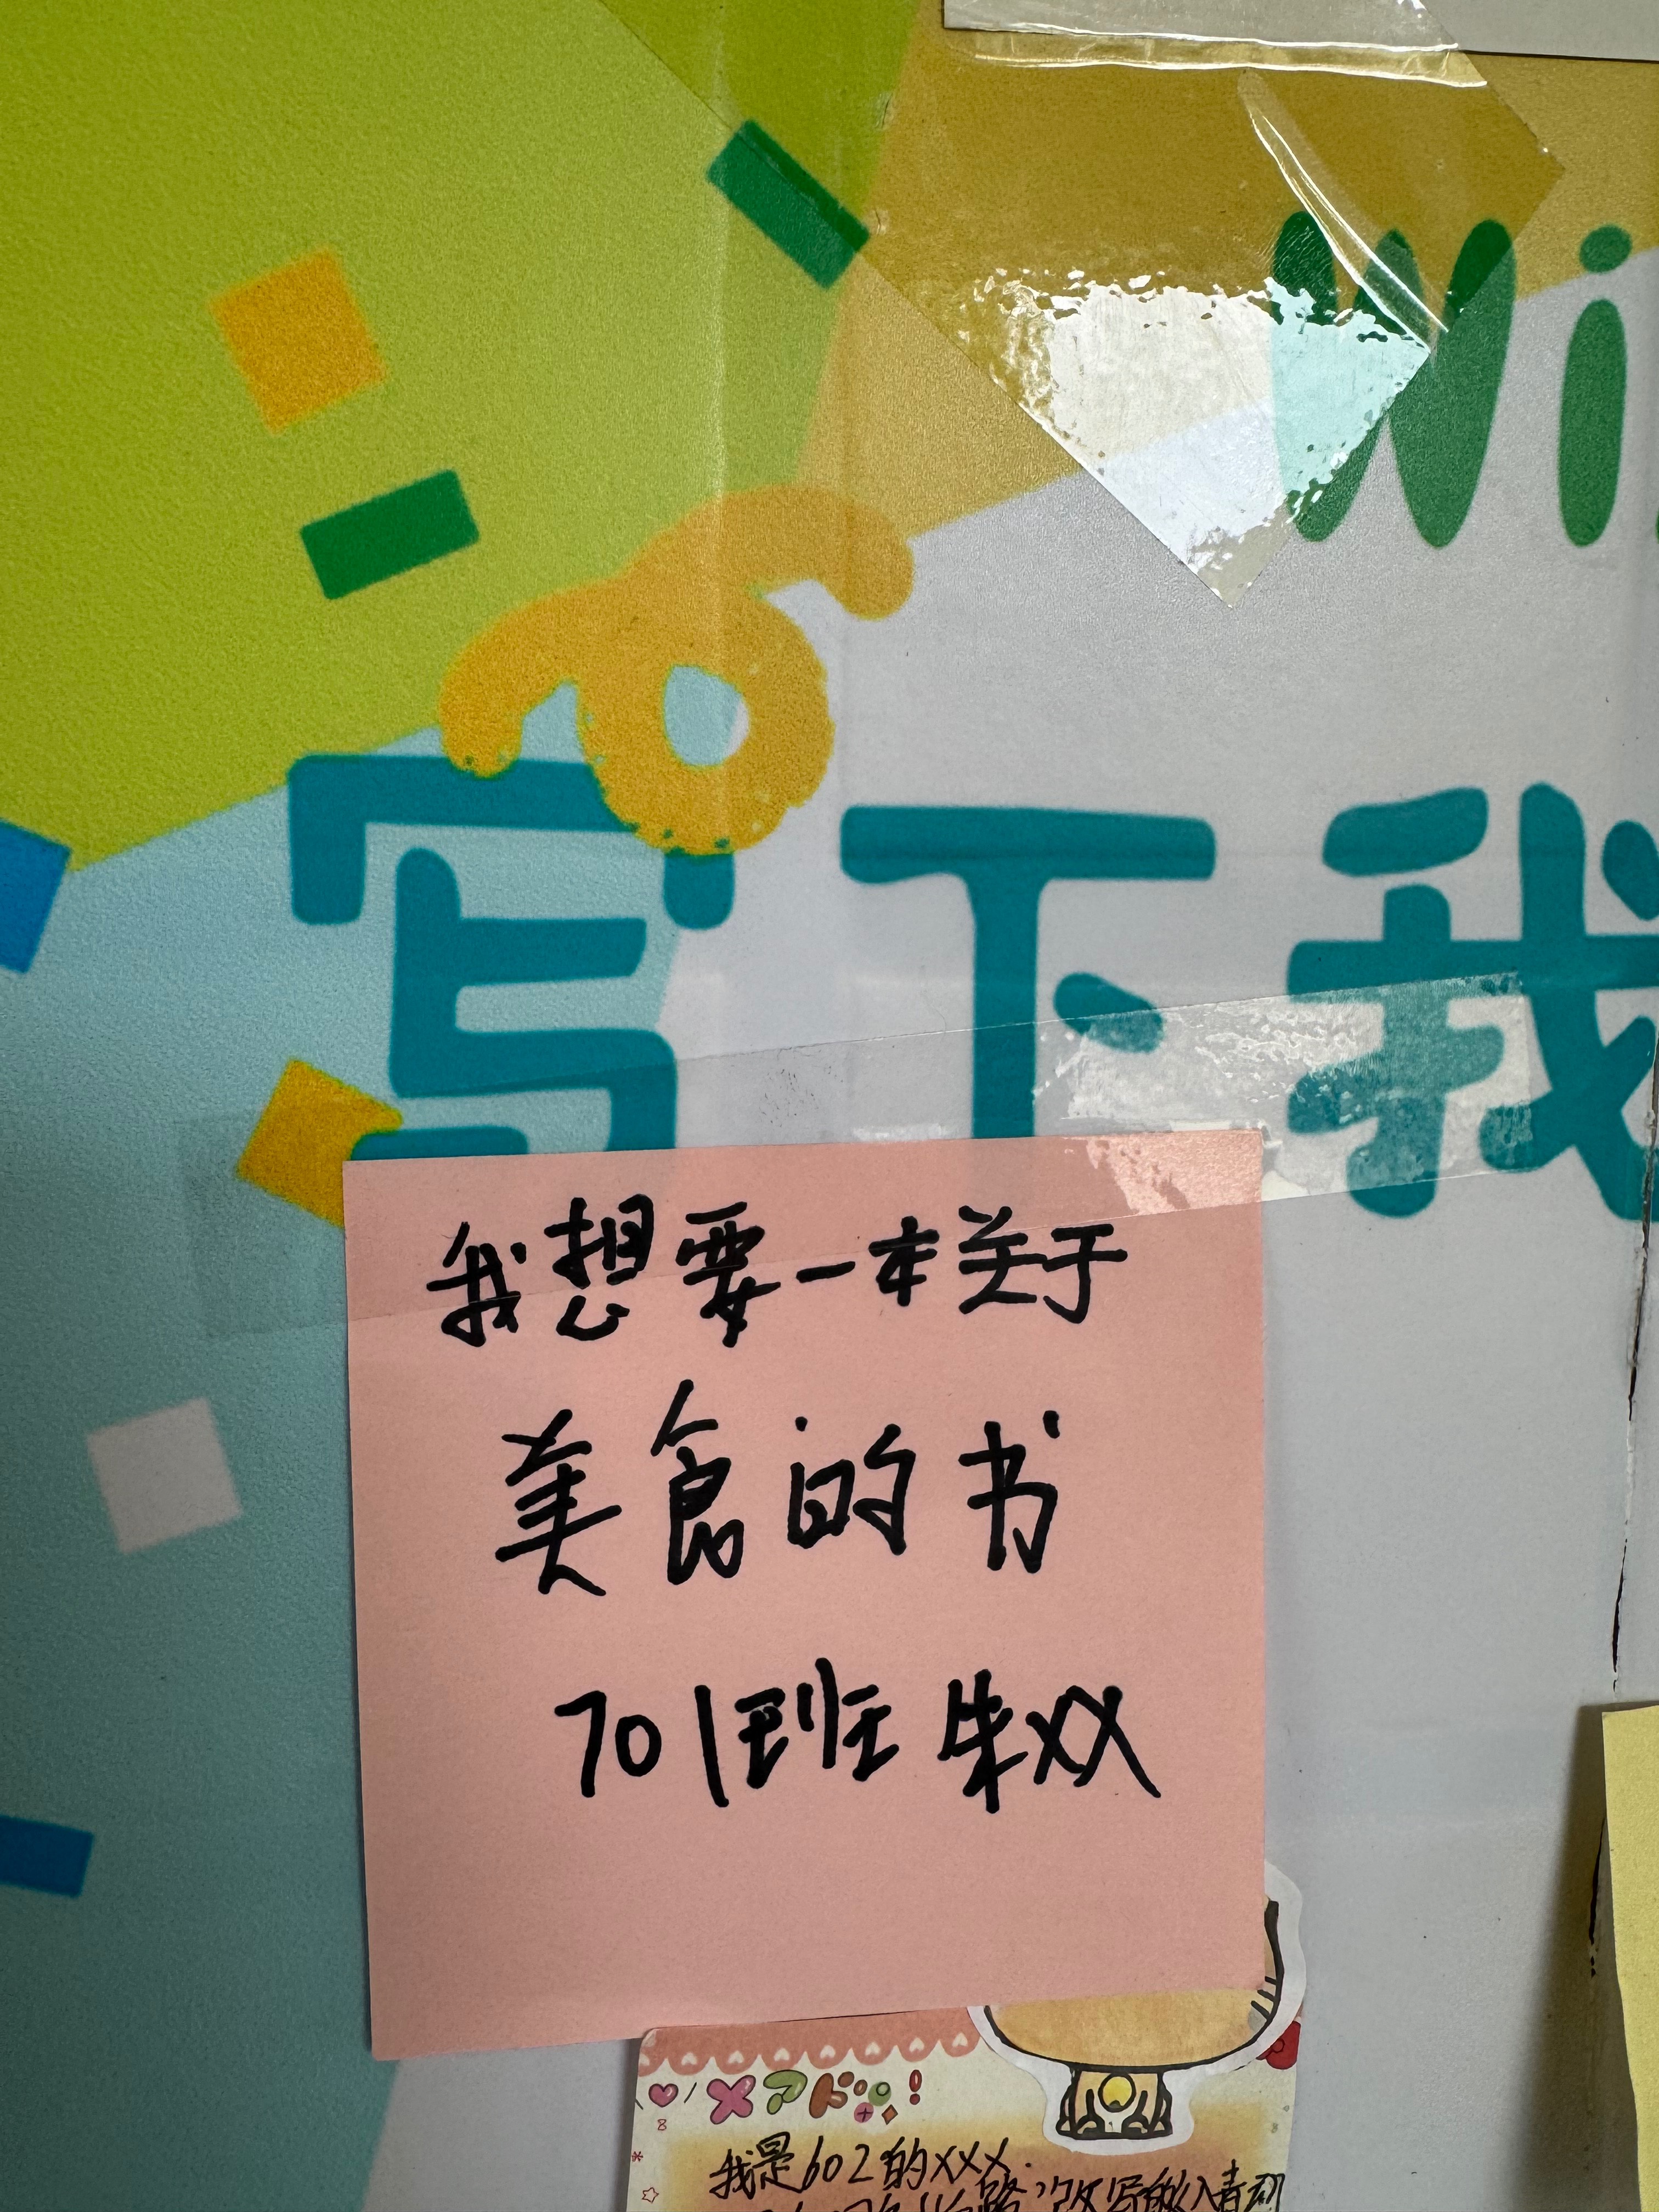 Wi
写下我
我想要一本关于
美食的书
701班 朱XX
我是602的XXX.